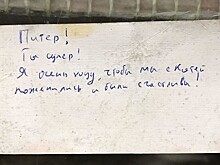 Питер!
Ты супер!
Я очень хочу, чтобы мы с Костей
поженились и были счастливы!